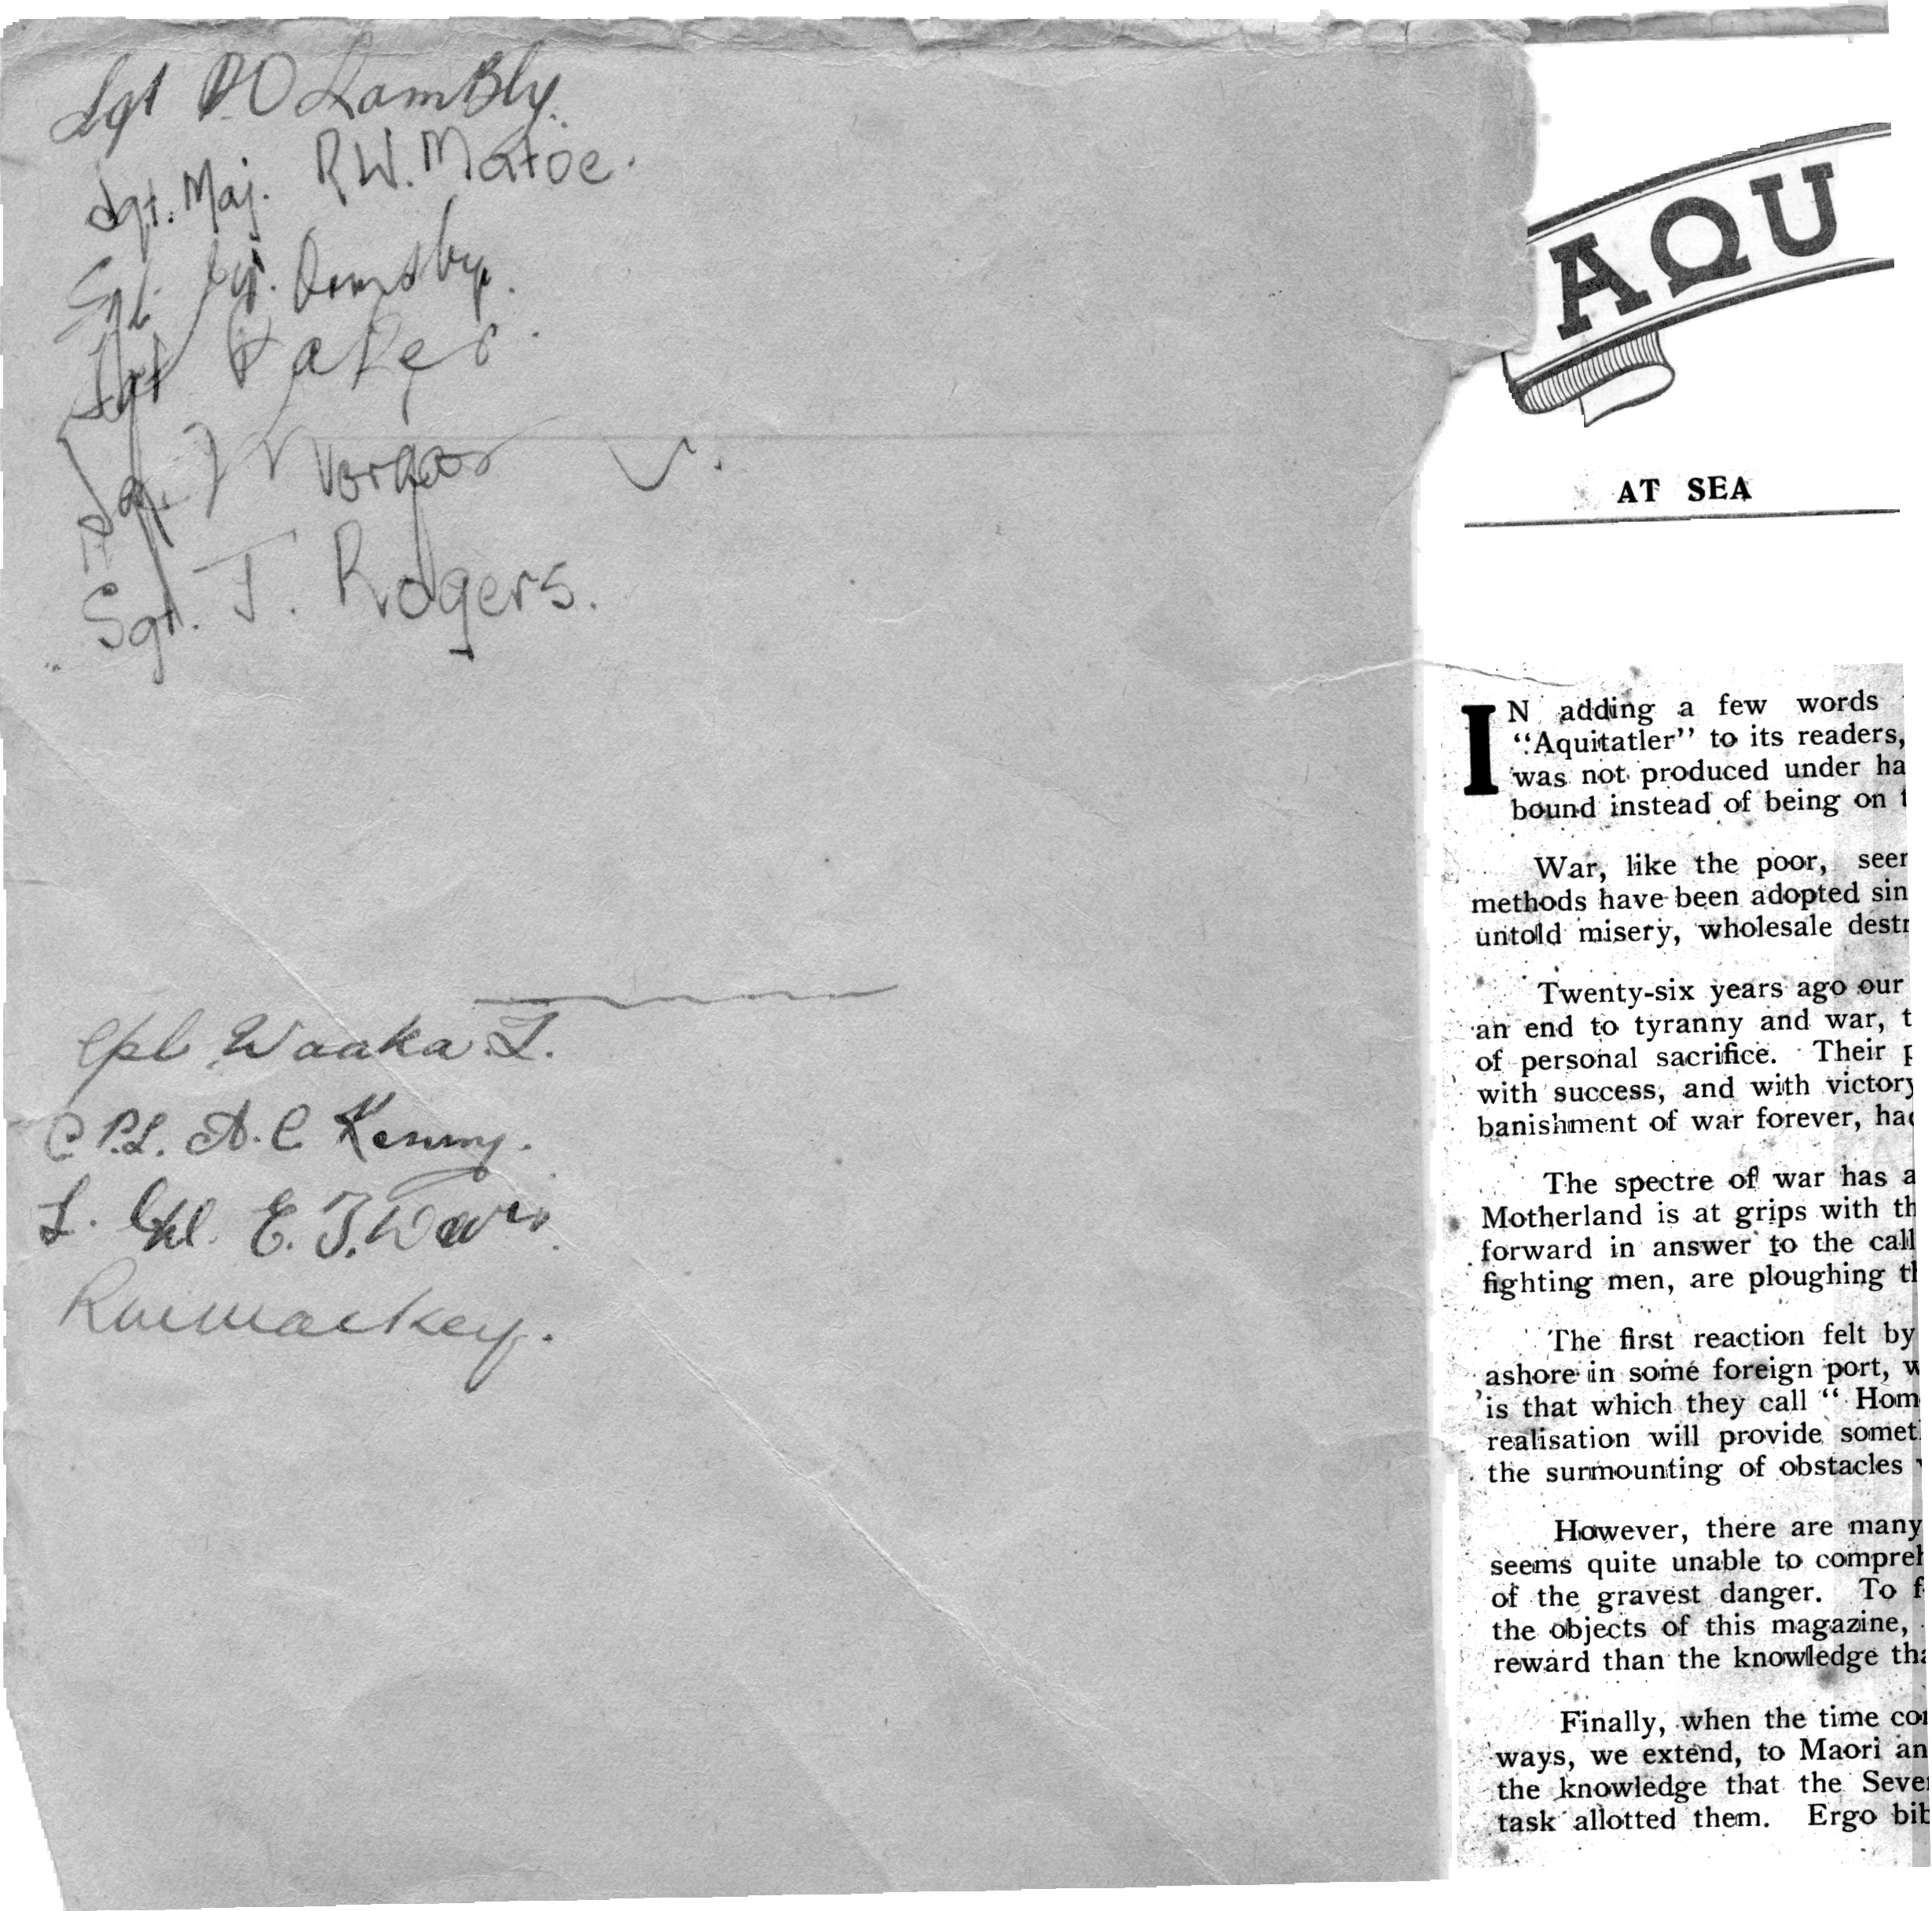 Sgt P.O Lambly.
Sgt. Maj. R.W. Matoe.
Sgt. Ormsby.
Sgt
Sgt.
Sgt. J. Rogers.
Cpl Waaka. T.
CPL. A.C Kenny.
L. Cpl. E. T. Davis.
Mackey.
AQU
AT SEA
IN adding a few words
"Aquitatler" to its readers,
was not produced under ha
bound instead of being on t
War, like the poor, seer
methods have been adopted sin
untold misery, wholesale destr
Twenty-six years ago our
an end to tyranny and war, t
of personal sacrifice. Their p
with success, and with victory
banishment of war forever, had
The spectre of war has a
Motherland is at grips with th
forward in answer to the call
fighting men, are ploughing th
The first reaction felt by
ashore in some foreign port, w
is that which they call " Hom
realisation will provide somet
the surmounting of obstacles
However, there are many
seems quite unable to compreh
of the gravest danger. To f
the objects of this magazine,
reward than the knowledge tha
Finally, when the time co
ways, we extend, to Maori an
the knowledge that the Seve
task allotted them. Ergo bib